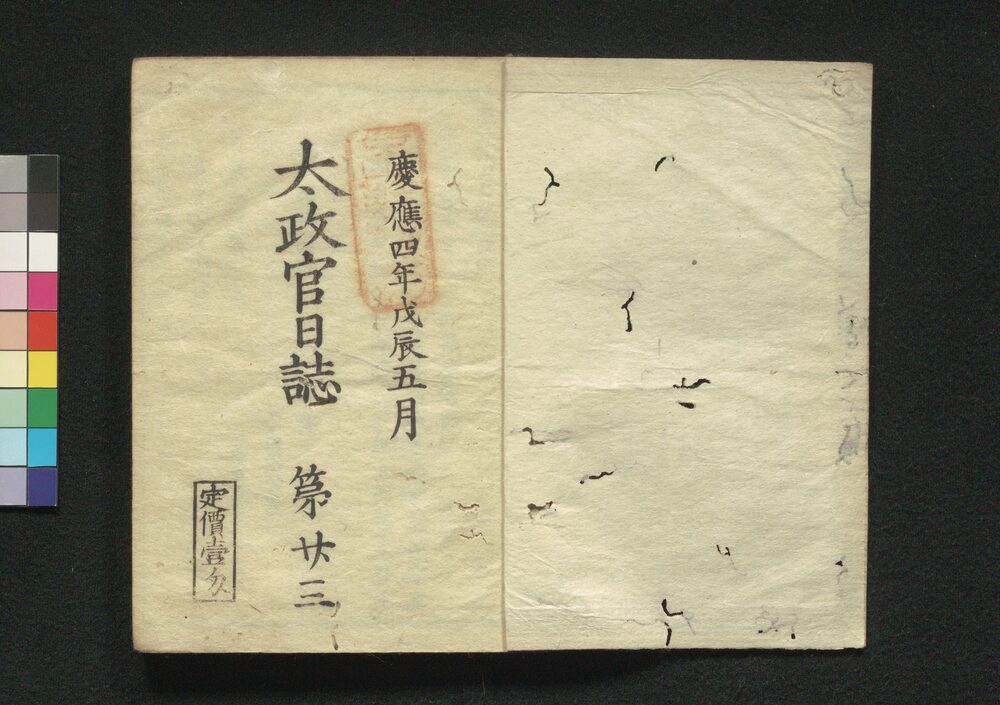 慶應四年戊辰五月
太政官日誌 第廿三
定價壹匁